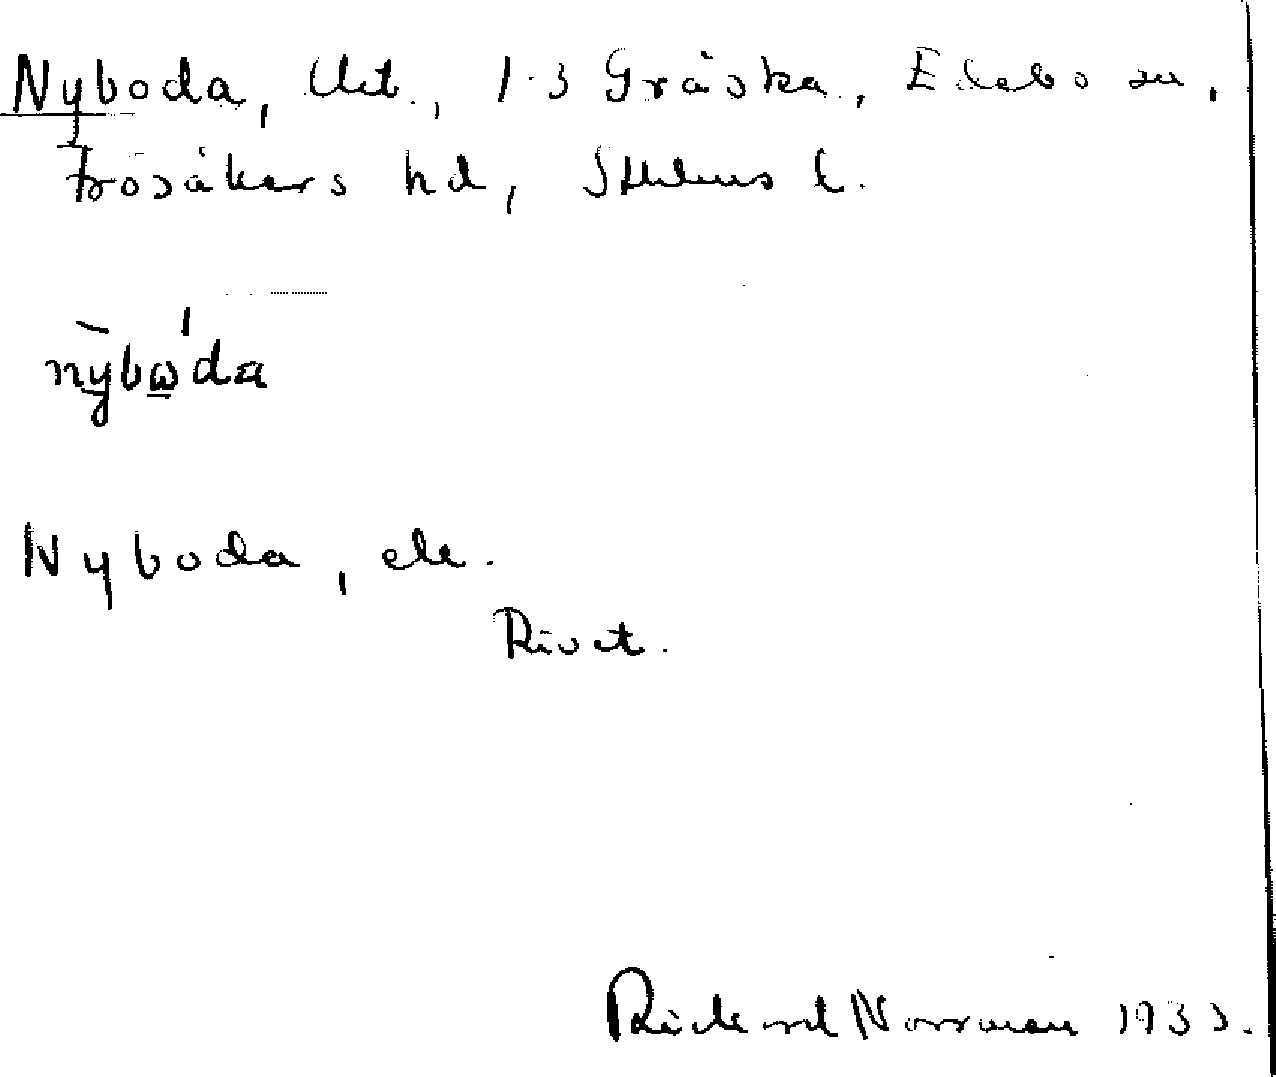 Nyboda, 1:3 Gräska, Edebo sn,
Frösåkers hd, Sthlms l.
nybωda
Nyboda,
Rivet.
Rickard Norrman 1933.